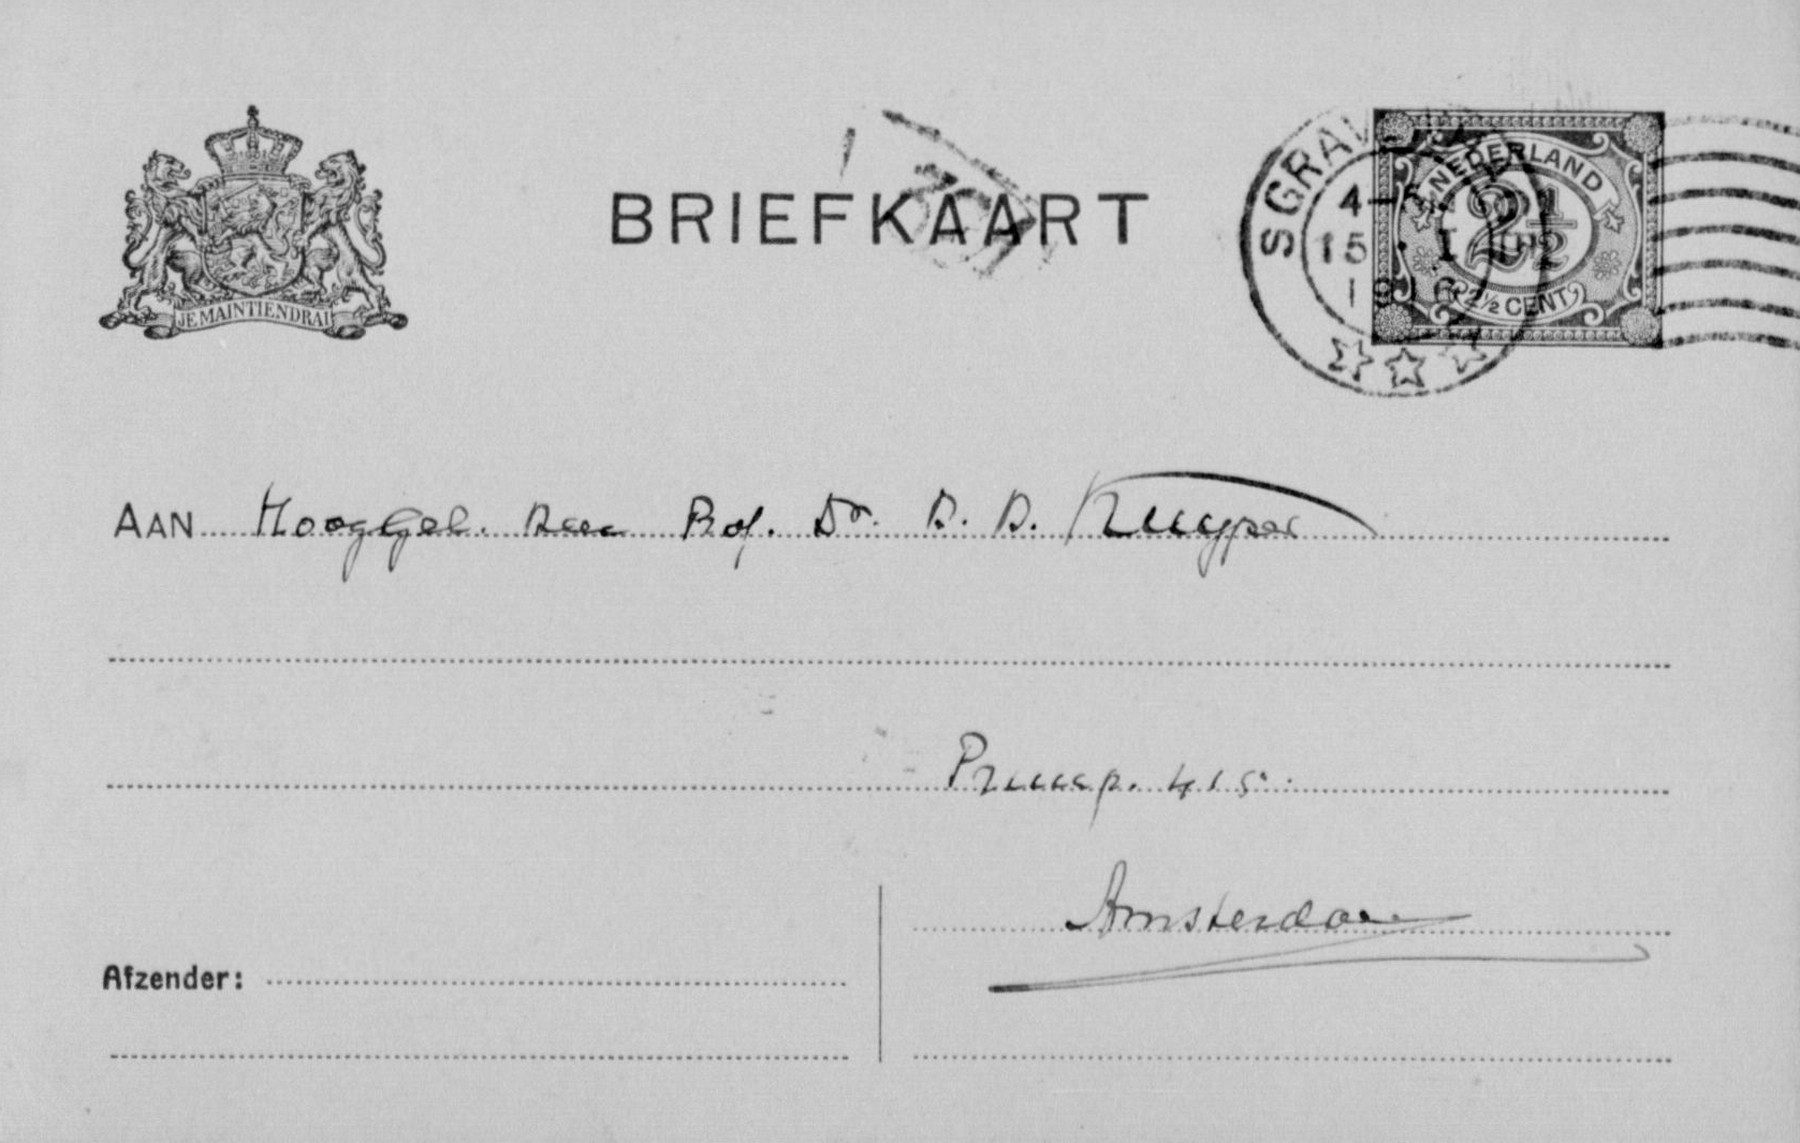 BRIEFKAART
JE MAINTIENDRAI
SGRAV
4-5
15 . I
1916
NEDERLAND
2½
2½ CENT
AAN Hooggel. Heer Prof. Dr. A. A. Kuyper
Prinsep. 415.
Amsterdam
Afzender: